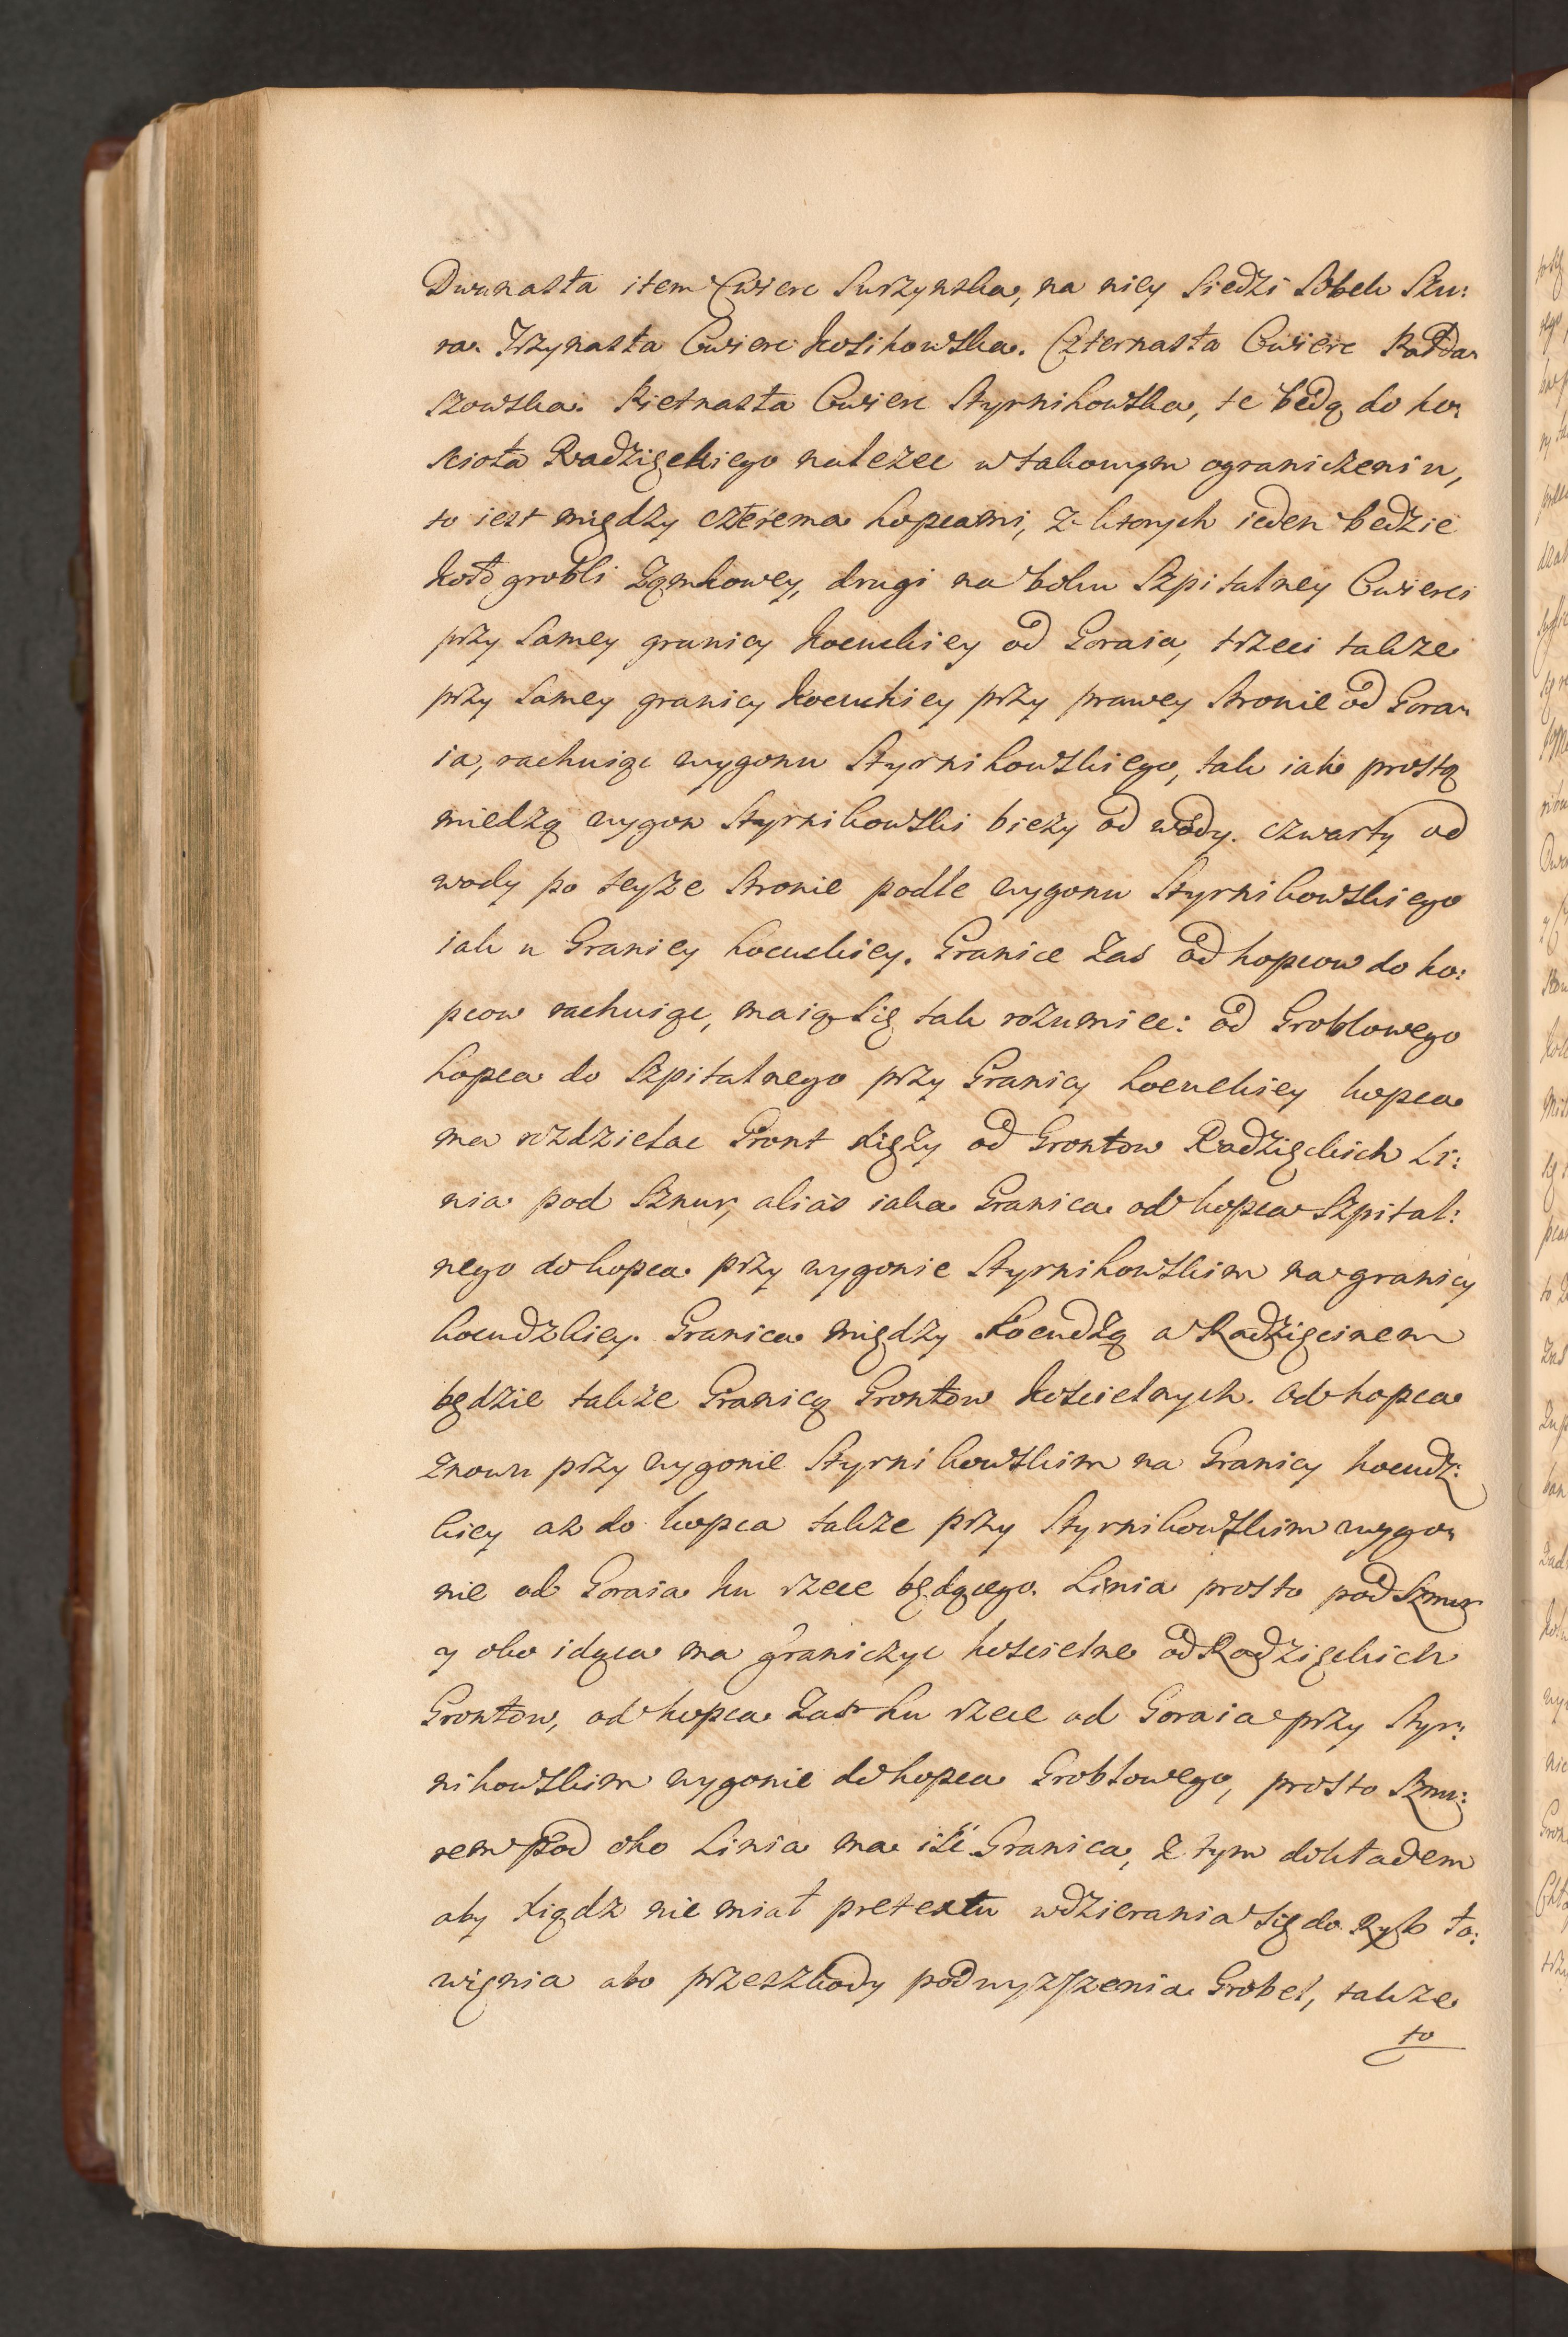 Dwunasta item Cwierc Surzynska, na niey Siedzi Sobek Szu:
ra. Trzynasta Cwierc Kosikowska. Czternasta Cwierc Kałda-
szowska. Pietnasta Cwierc Styrnikowska, te bedą do ko-
scioła Radzięckiego nalezec w takowym ograniczeniu,
to iest między czterema kopcami, z ktorych ieden bedzie
koło grobli Zamkowey, drugi na boku Szpitalney Cwierci
przy Samey granicy Kocuckiey od Goraia, trzeci takze
przy Samey granicy Kocuckiey przy prawey Stronie od Gora-
ia, rachuiąc wygonu Styrnikowskiego, tak iak prostą
miedzą wygon Styrnikowski biezy od wody. czwarty od
wody po teyze Stronie podle wygonu Styrnikowskiego
iak u Granicy kocuckiey. Granice Zas od kopcow do ko:
pcow rachuiąc, maią Się tak rozumiec: od Groblowego
kopca do Szpitalnego przy Granicy kocuckiey kopca
ma rozdzielac Gront Xięży od Grontow Radzięckich Li:
nia pod Sznur, alias iaka Granica od kopca Szpital:
nego do kopca przy wygonie Styrnikowskim na granicy
kocudzkiey. Granica między Kocudzą a Radzięcinem
będzie takze Granicą Grontow koscielnych. od kopca
znowu przy wygonie Styrnikowskim na Granicy kocudz:
kiey az do kopca takze przy Styrnikowskim wygo-
nie od Goraia ku rzece będącego. Linia prosto pod Sznur
y oko idąca ma graniczyc koscielne od Radzięckich
Grontow, od kopca Zas ku rzece od Goraia przy Styr:
nikowskim wygonie do kopca Groblowego, prosto Sznu:
rem pod oko Linia ma iść Granica, z tym dokładem
aby Xiądz nie miał pretextu wdzierania Się do Ryb ło:
wienia abo przeszkody podwyzszenia Grobel, takze
to